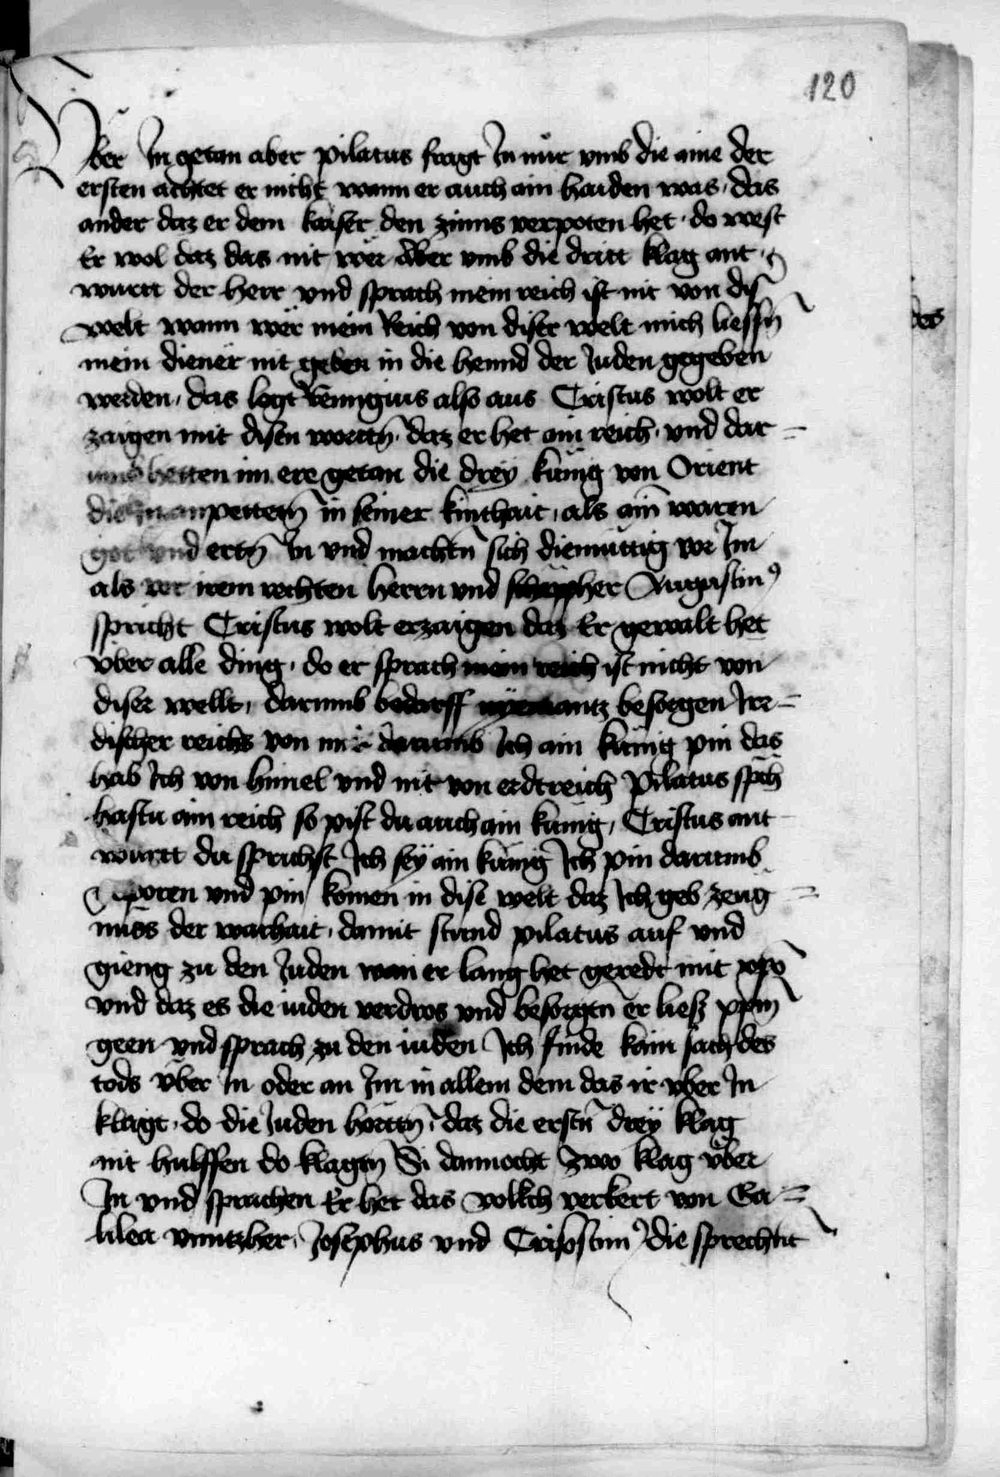 120
Vber In getan aber pilatus fragt In nur vmb die aine der
ersten achtet er nicht wann er auch ain haiden was · das
ander daz er dem kaiser den zinns verpoten het · do west
Er wol daz das nit wër Aber vmb die dritt klag ant
wurtt der herr vnd sprach mein reich ist nit von diser
welt wann wër mein Reich von diser welt mich liessn̄
mein dienër nit geben in die hennd der Juden gegeben
werden · das legt Remigius also aus Cristus wolt er
zaigen mit disen wortn̄ · daz er het ain reich · vnd dar =
umb hetten im ere getan die drey künig von Orient
die In anpettetn̄ in seiner kinthait · als aim̄ waren
got vnd ertn̄ In vnd machtn̄ sich diemüttig vor Im
als vor irem rechten herrn vnd schepher Augustinꝰ
spricht Cristus wolt erzaigen daz Er gewalt het
vber alle ding · do er sprach mein reich ist nicht von
diser wellt · darumb bedarff nyemantz besorgen Irr =
discher reichs von mir darumb Ich ain künig pin das
hab Ich von himel vnd nit von erdtreich Pilatus sp̄ch
hastu ain reich so pist du auch ain künig · Cristus ant
wurtt du sprichst Ich sey ain künig Ich pin darumb
geporen vnd pin komen in dise welt daz Ich geb zeug =
nüss der warhait · damit stund pilatus auf vnd
gieng zu den Juden wan er lang het geredt mit xp̄o
vnd daz es die iuden verdros vnd besorgtn̄ er liesz xp̄m
geen vnd sprach zu den iuden Ich finde kain sach des
tods vber In oder an Im in allem dem das ir vber In
klagt · do die Juden hortn̄ · daz die erstn̄ drey klag
nit hulffen do klagtn̄ Si dannocht zwo klag vber
In vnd sprachen Er het das volkch verkert von Ga =
lilea vnntzher · Josephus vnd Crisostimꝰ die sprechnt